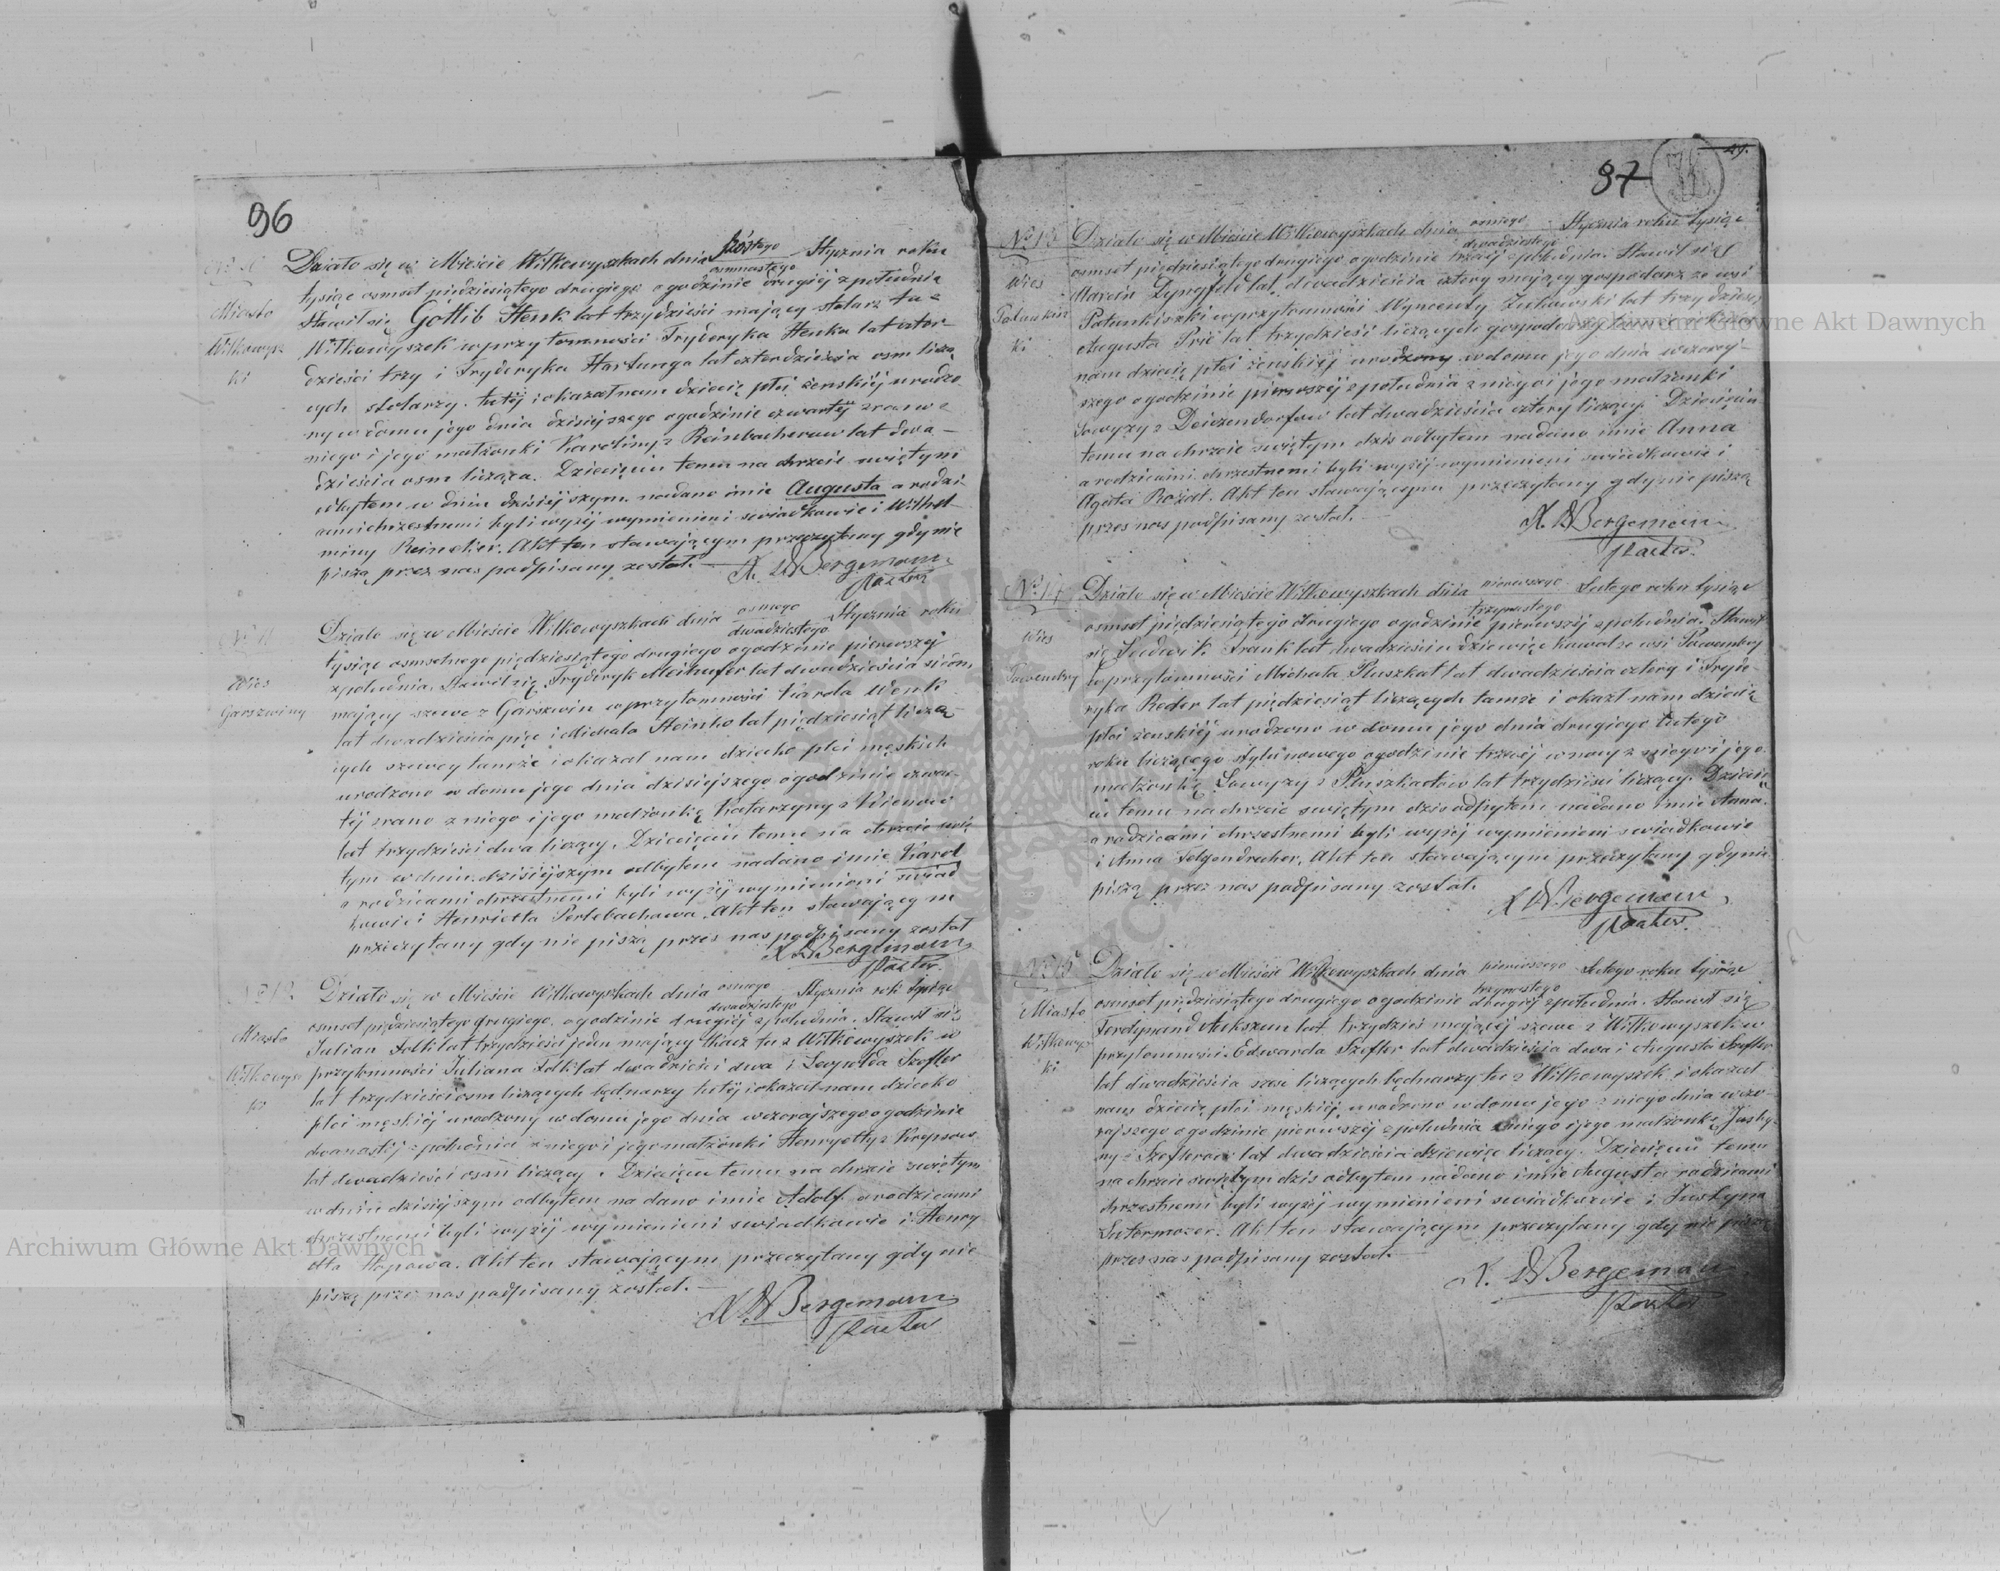 96
Nº 10
Miasto
Wilkowysz
ki
Działo się w Mieście Wilkowyszkach dnia szóstego / osmnastego Stycznia roku
tysiąc osmset pięćdziesiątego drugiego o godzinie drugiéj z południa
Stawił się Gottlib Henk lat trzydzieści mający stolarz tu z
Wilkowyszek w przytomności Fryderyka Henka lat czter-
dzieści trzy i Fryderyka Hartunga lat czterdzieścia osm liczą
cych stolarzy tutéj i okazał nam dziecię płci żeńskiéj urodzo
ny w domu jego dnia dzisiejszego o godzinie czwartéj z rana z
niego i jego małżonki Karoliny z Reinbacherow lat dwa-
dzieścia osm licząca. Dziecięciu temu na chrzcie świętym
odbytem w dniu dzisiéjszym nadano imie Augusta a rodzi
cami chrzestnemi byli wyżéj wymienieni świadkowie i Wilhel
miny Akt ten stawającym przeczytany gdy nie
piszą przez nas podpisany został.
X. W Bergemann
Pastor
Nº 11
Wies
Garszwiny
Działo się w Mieście Wilkowyszkach dnia osmego / dwudziestego Stycznia roku
tysiąc osmsetnego pięćdziesiątego drugiego o godzinie pierwszej
z południa. Stawił się Fryderyk Meihufer lat dwadzieścia siedm
mający szewc z Garszwin w przytomności Karola Wenk
lat dwadzieścia pięc i Michała Steinke lat pięćdziesiąt liczą-
cych szewcy tamże i okazał nam dziecko płci męskiéj
urodzone w domu jego dnia dzisiejszego o godzinie czwar-
téj z rana z niego i jego małżonką Katarzyny z
lat trzydzieści dwa liczący. Dziecięciu temu na chrzcie świę
tym w dniu dzisiéjszym odbytem nadano imie Karol
a rodzicami chrzestnemi byli wyżéj wymienieni świad
kowie i Henrietta Perlebachowa. Akt ten stawającym
przeczytany gdy nie piszą przez nas podpisany został
X. W Bergemann
Pastor.
Nº 12
Miasto
Wilkowysz
ki
Działo się w Mieście Wilkowyszkach dnia osmego / dwudziestego Stycznia roku tysiąc
osmset pięćdziesiątego drugiego o godzinie drugiéj z południa. Stawił się
Julian Folk lat trzydzieści jeden mający tkacz tu z Wilkowyszek w
przytomności Juliana Folk lat dwadzieści dwa i Leopolda Szefler
lat trzydzieści osm liczących bednarzy tutéj i okazał nam dziecko
płci męskiéj urodzony w domu jego dnia wczorajszego o godzinie
dwanastéj z południa z niego i jego małżonki Henryetty z
lat dwadzieści osm liczący. Dziecięciu temu na chrzcie świętym
w dniu dzisiejszym odbytem nadano imie Adolf a rodzicami
chrzestnemi byli wyżéj wymienieni świadkowie i Henry
etta Akt ten stawającym przeczytany gdy nie
piszą przez nas podpisany został.
X. W Bergemann
Pastor
97
Nº 13
Wies
Patunkisz
ki
Działo się w Mieście Wilkowyszkach dnia osmego / dwudziestego Stycznia roku tysiąc
osmset pięćdziesiątego drugiego o godzinie trzeciéj z południa. Stawił się
Marcin lat dwadzieścia cztery mający gospodarz ze wsi
Patunkiszki w przytomności Wyncenty Żukowski lat trzydzieści
Augusta lat trzydzieści liczących gospodarzy i okazał
nam dziecię płci żeńskiéj urodzony w domu jego dnia wczoraj-
szego o godzinie pierwszéj z południa z niego i jego małżonki
z lat dwadzieścia cztery liczący. Dziecięciu
temu na chrzcie świętym dziś odbytem nadano imie Anna
a rodzicami chrzestnemi byli wyżéj wymienieni świadkowie i
Agata Akt ten stawającym przeczytany gdy nie piszą
przez nas podpisany został.
X. W Bergemann
Pastor.
Nº 14
Wies
Działo się w Mieście Wilkowyszkach dnia pierwszego / trzynastego Lutego roku tysiąc
osmset pięćdziesiątego drugiego o godzinie pierwszéj z południa. Stawił
się Ludwik Frank lat dwadzieścia dziewięc kowal ze wsi
w przytomności Michała Pluszkat lat dwadzieścia cztery i Fryde
ryka Reder lat pięćdziesiąt liczących tamże i okazał nam dziecię
płci żeńskiéj urodzono w domu jego dnia drugiego Lutego
roku bieżącego stylu nowego o godzinie trzeciéj w nocy z niego i jego
małżonkę z Pluszkadtów lat trzydzieści liczący. Dziecię
ciu temu na chrzcie świętym dziś odbytem nadano imie Anna,
a rodzicami chrzestnemi byli wyżéj wymienieni świadkowie
i Anna Felgendreher. Akt ten stawającym przeczytany gdy nie
piszą przez nas podpisany został.
X W Bergemann,
Pastor.
Nº 15
Miasto
Wilkowysz
ki
Działo się w Mieście Wilkowyszkach dnia pierwszego / trzynastego Lutego roku tysiąc
osmset pięćdziesiątego drugiego o godzinie drugiéj z południa. Stawił się
Ferdynand lat trzydzieści mający szewc z Wilkowyszek w
przytomności Edwarda Szefler lat dwadzieścia dwa i Augusta Szefler
lat dwadzieścia szesc liczących bednarzy tu z Wilkowyszek i okazał
nam dziecię płci męskiéj urodzono w domu jego z niego dnia wczo-
rajszego o godzinie pierwszéj z południa z niego i jego małżonkę Justy-
ny z Szeflerow lat dwadzieścia dziewięc liczący. Dziecięciu temu
na chrzcie świętym dziś odbytem nadano imie August a rodzicami
chrzestnemi byli wyżéj wymienieni świadkowie i Justyna
Akt ten stawającym przeczytany gdy nie piszą
przez nas podpisany został.
X. W Bergemann
Pastor
Archiwum Główne Akt Dawnych
Archiwum Główne Akt Dawnych